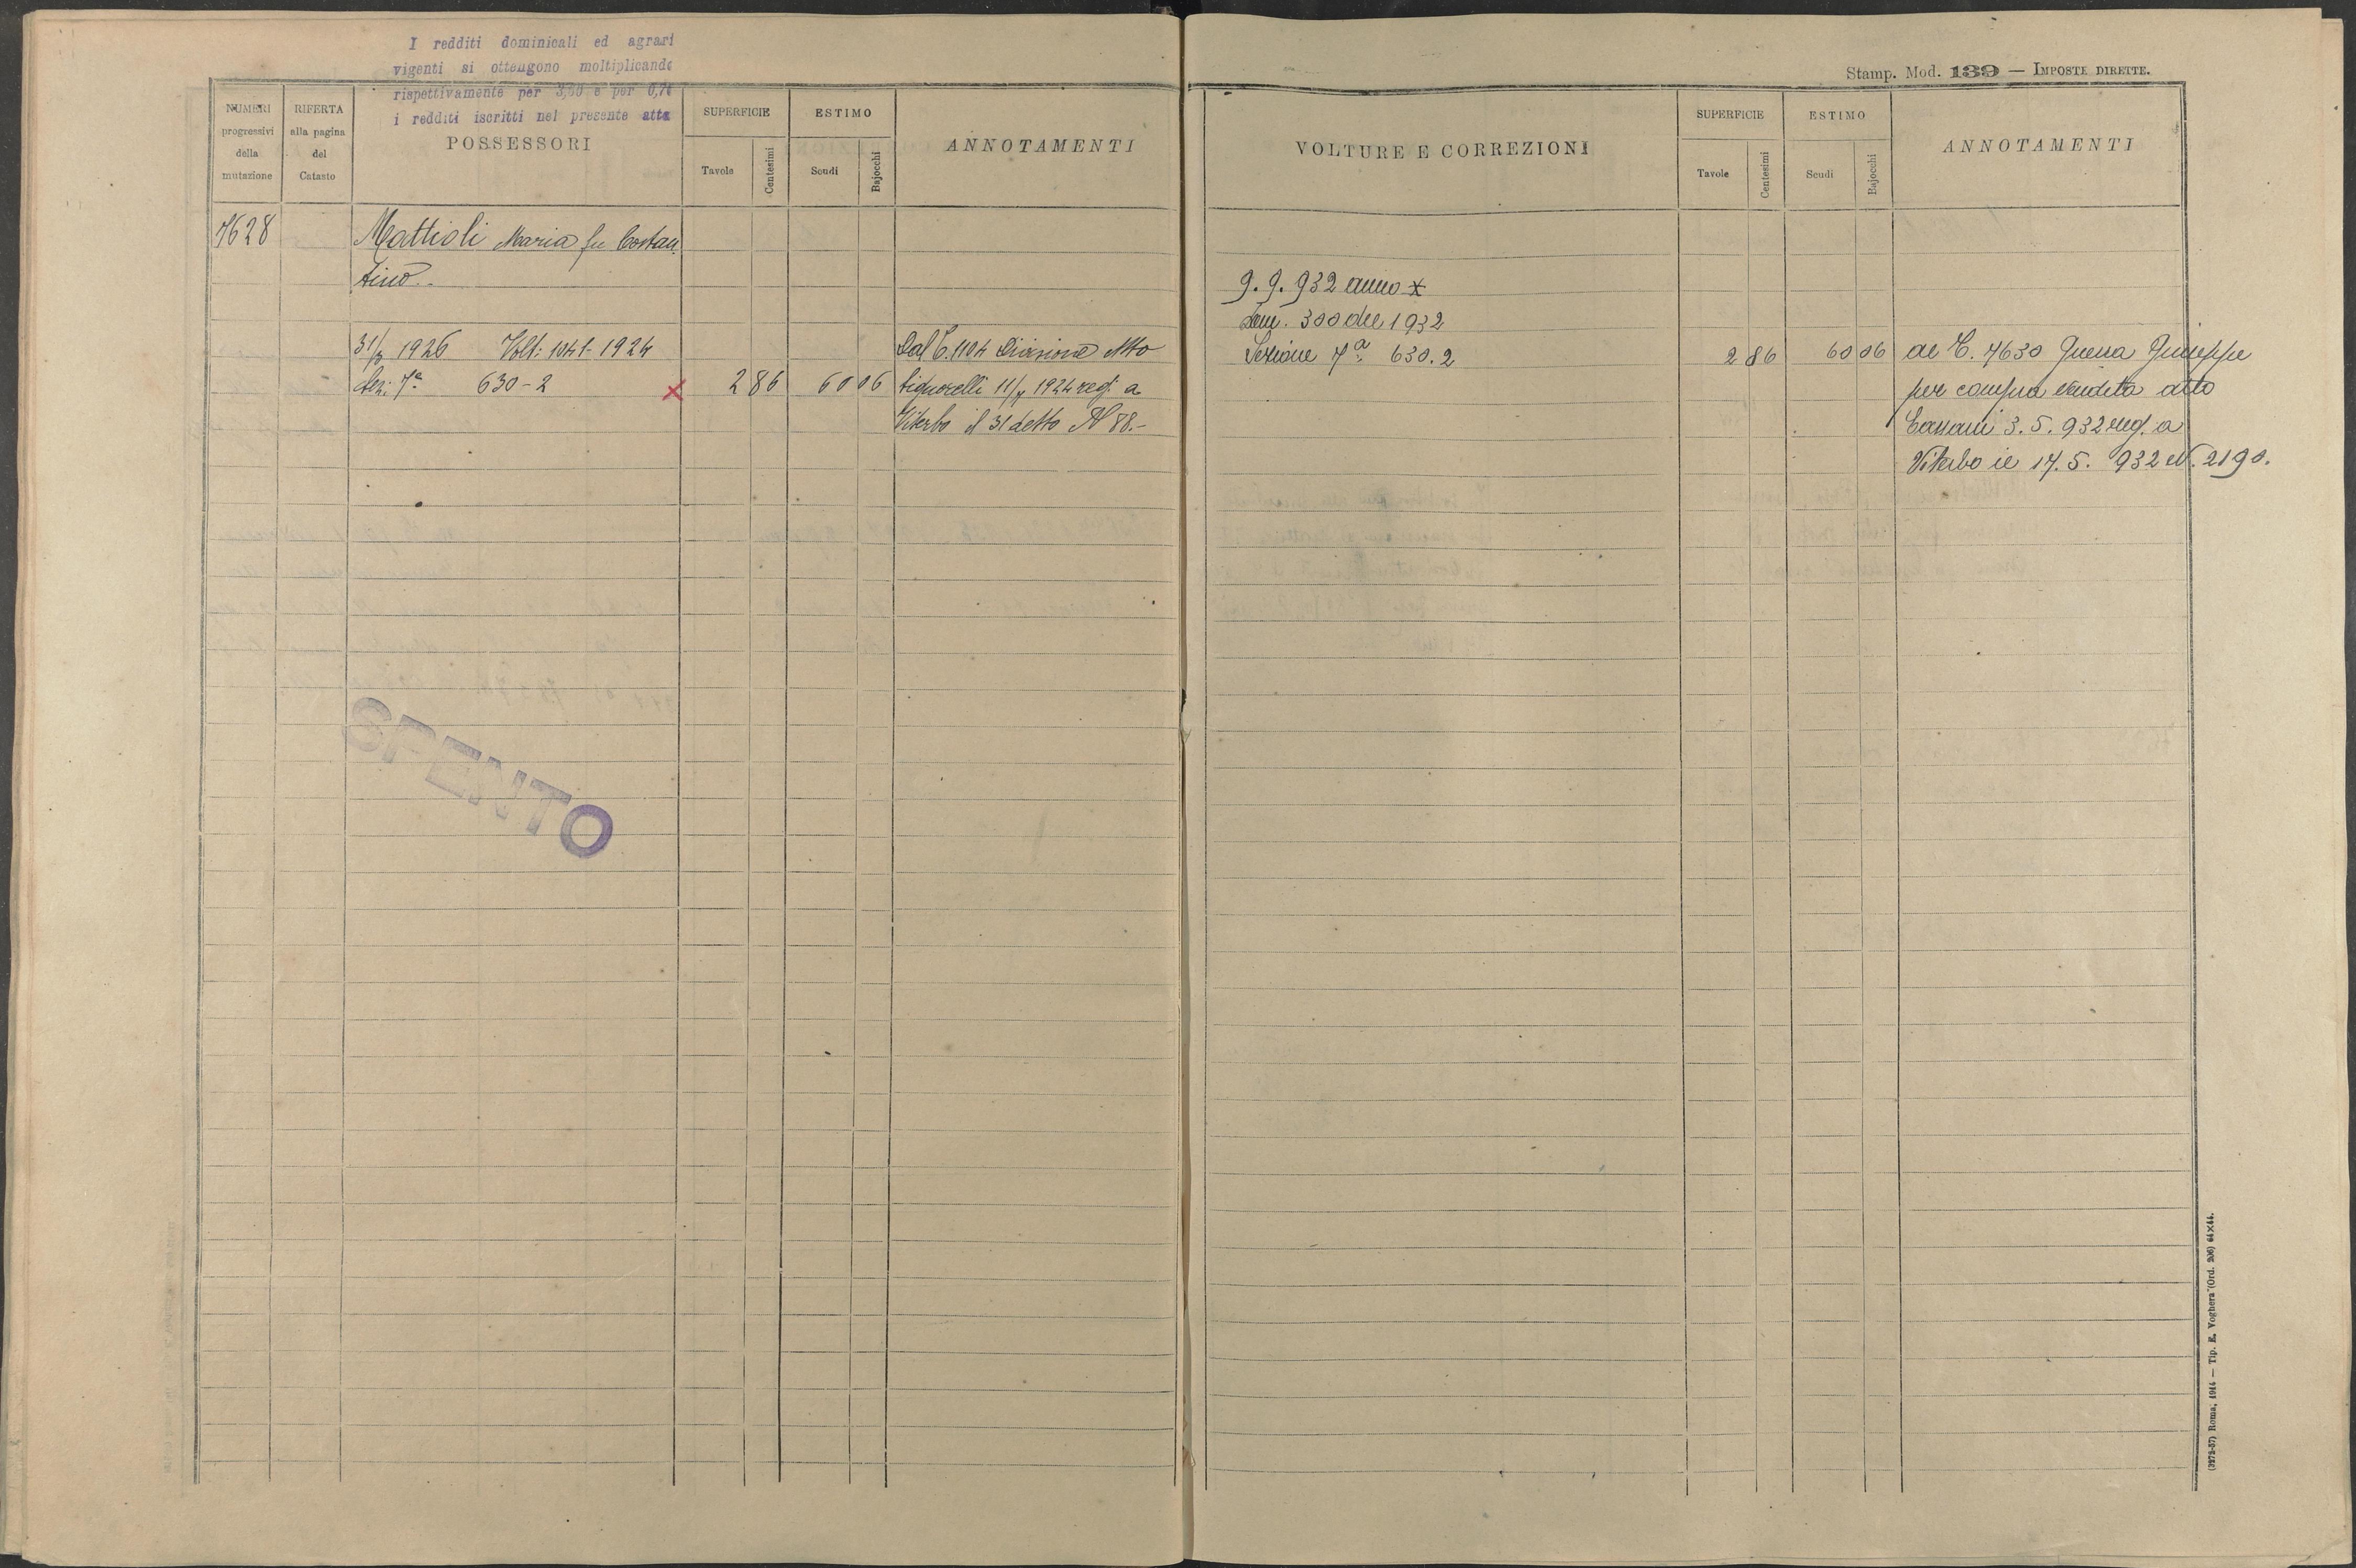 I redditi dominicali ed agrari
vigenti si ottengono moltiplicando
rispettivamente per 3,60 e per
i redditi iscritti nel presente atto
Stamp. Mod. 139 — IMPOSTE DIRETTE.
NUMERI progressivi della mutazione
RIFERTA alla pagina del Catasto
POSSESSORI
SUPERFICIE
Tavole
Centesimi
ESTIMO
Scudi
Bajocchi
ANNOTAMENTI
7628
Mattioli Maria fu Costan
tino
31/3 1926 Volt: 1041-1924
Sez: 7ª 630-2 x 2 86 60 06
Dal C. 1104 Divisione Atto
Signorelli 11/7 1924 reg: a
Viterbo il 31 detto N 88.-
SPENTO
VOLTURE E CORREZIONI
SUPERFICIE
Tavole
Centesimi
ESTIMO
Scudi
Bajocchi
ANNOTAMENTI
9.9.932 anno X
300 del 1932
Sezione 7ª 630.2 2 86 60 06
al C. 7630 Guerra Giuseppe
per compra vendita atto
3.5.932 reg. a
Viterbo il 17.5.932 N. 2190.
(3272-57) Roma, 1914 — Tip. E. Voghera (Ord. 206) 64×44.